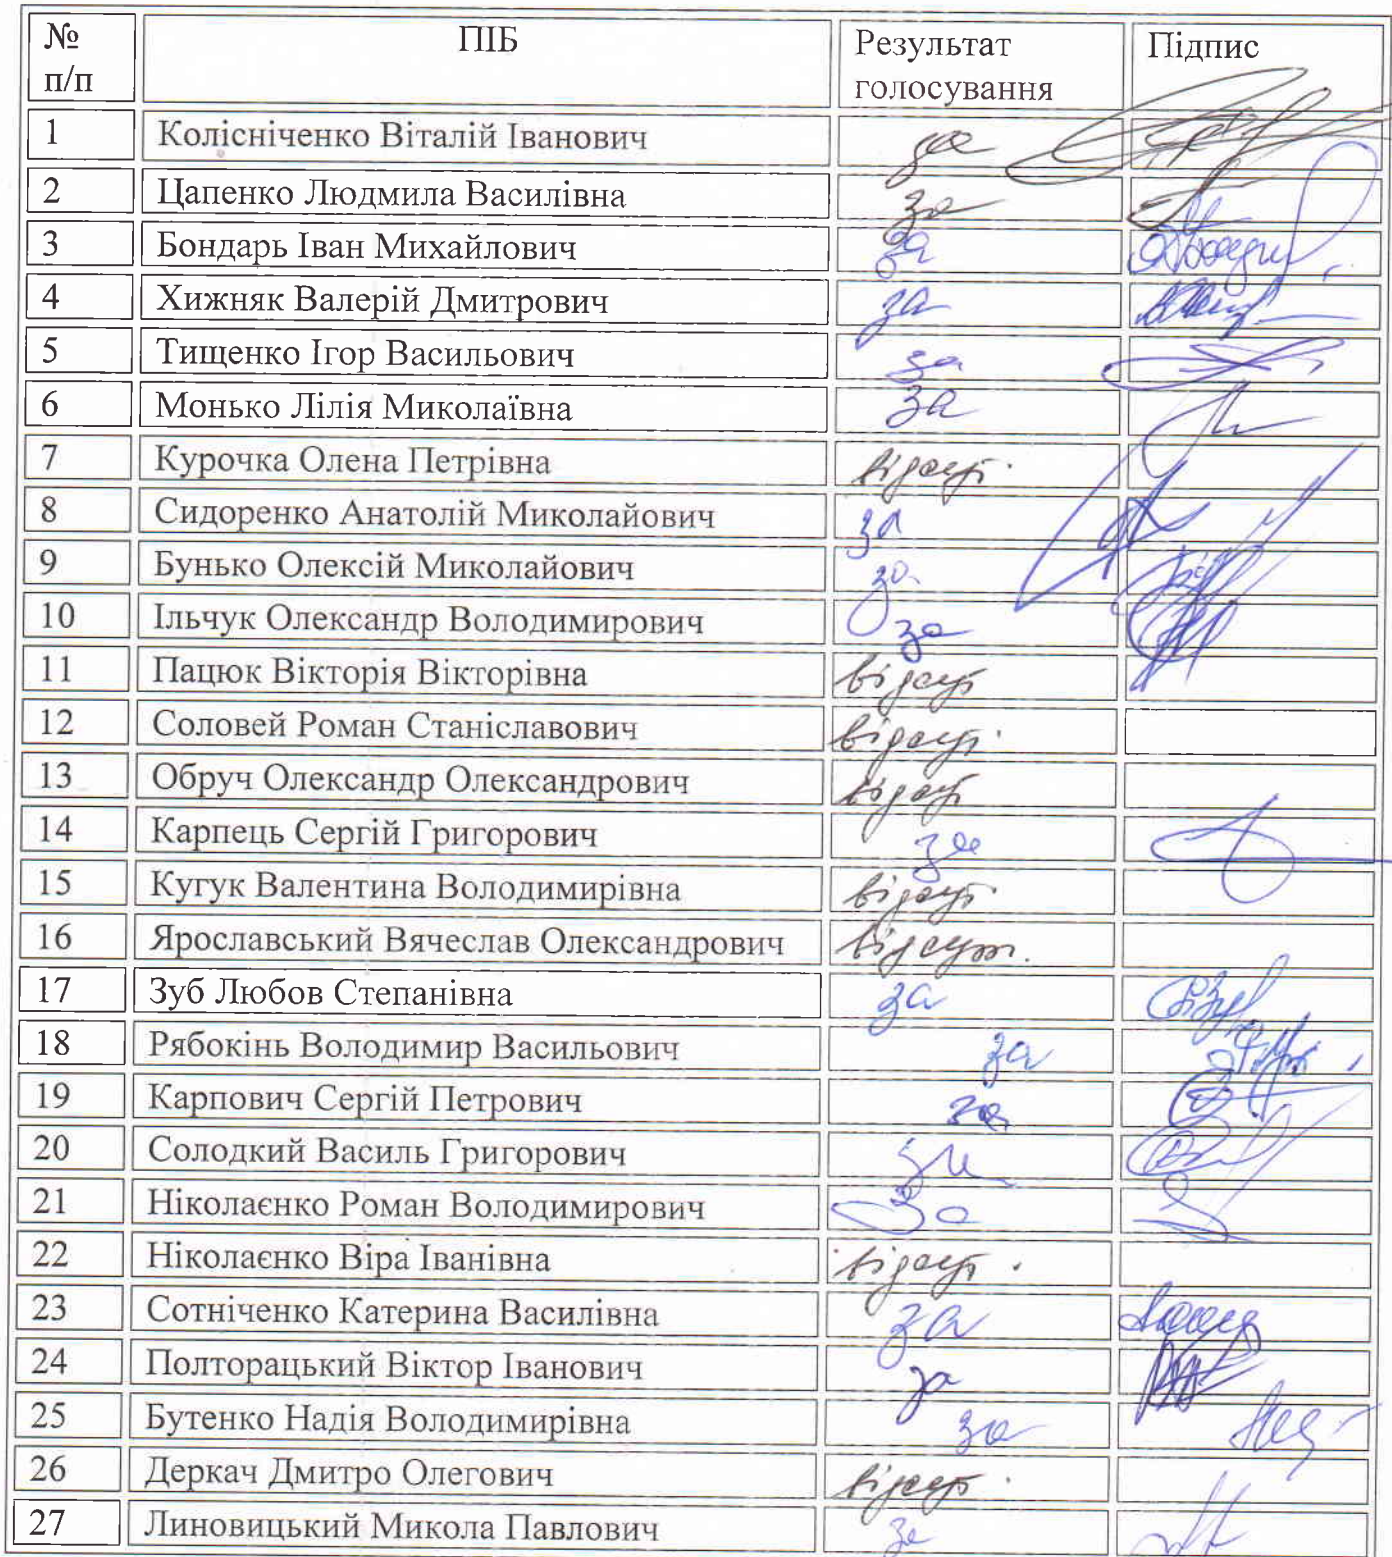 № п/п ПІБ Результат голосування Підпис
1 Колісніченко Віталій Іванович за
2 Цапенко Людмила Василівна за
3 Бондарь Іван Михайлович за
4 Хижняк Валерій Дмитрович за
5 Тищенко Ігор Васильович за
6 Монько Лілія Миколаївна за
7 Курочка Олена Петрівна відсут.
8 Сидоренко Анатолій Миколайович за
9 Бунько Олексій Миколайович за
10 Ільчук Олександр Володимирович за
11 Пацюк Вікторія Вікторівна відсут
12 Соловей Роман Станіславович відсут.
13 Обруч Олександр Олександрович відсут
14 Карпець Сергій Григорович за
15 Кугук Валентина Володимирівна відсут.
16 Ярославський Вячеслав Олександрович відсут.
17 Зуб Любов Степанівна за
18 Рябокінь Володимир Васильович за
19 Карпович Сергій Петрович за
20 Солодкий Василь Григорович за
21 Ніколаєнко Роман Володимирович За
22 Ніколаєнко Віра Іванівна відсут.
23 Сотніченко Катерина Василівна за
24 Полторацький Віктор Іванович за
25 Бутенко Надія Володимирівна за
26 Деркач Дмитро Олегович відсут.
27 Линовицький Микола Павлович за